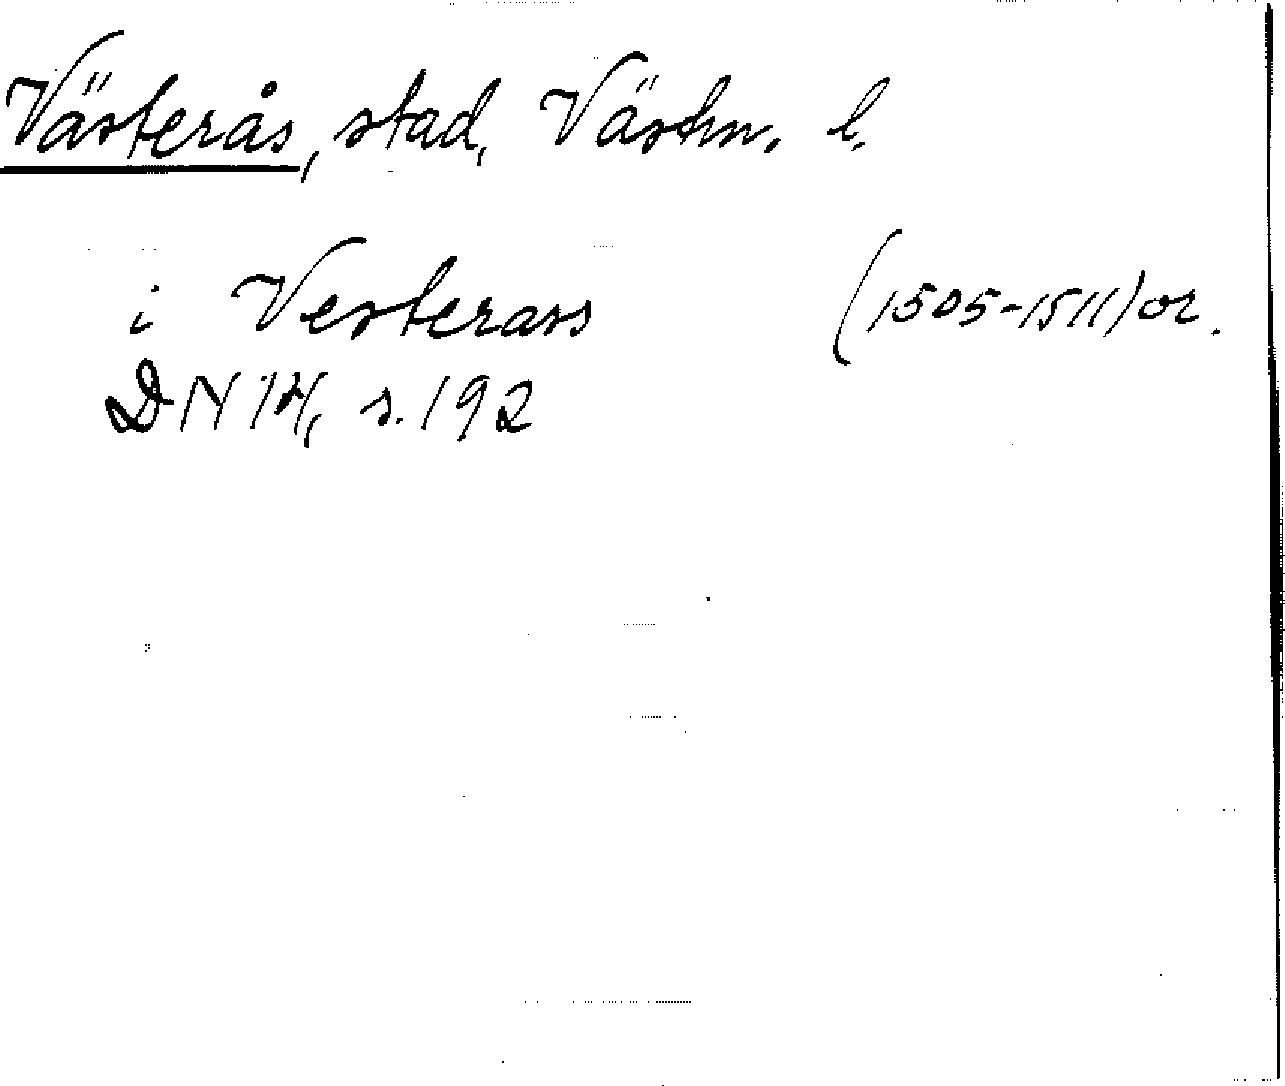 Västerås, stad, Västm. l.
i Vesterass (1505-1511) or.
DN 14, s. 192